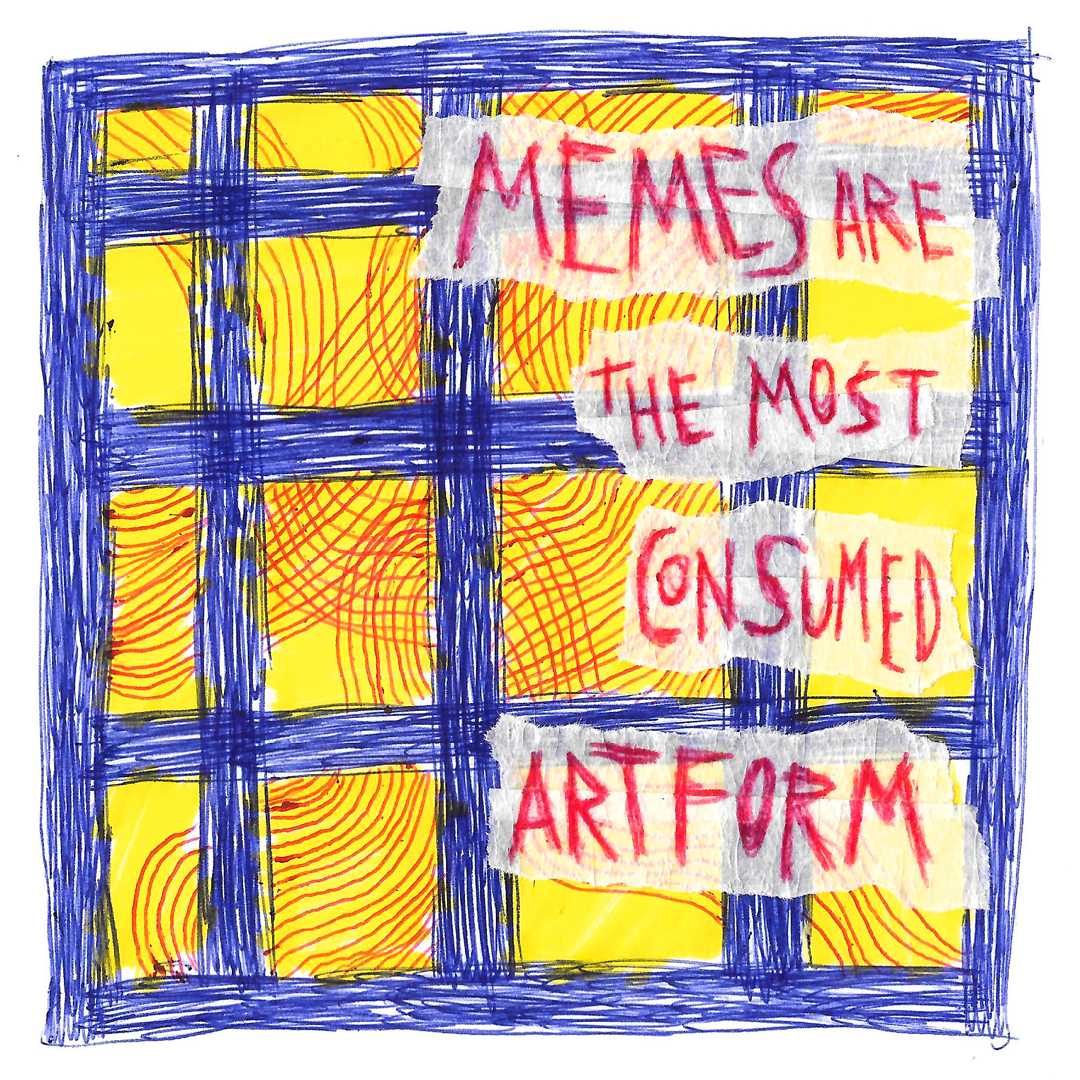 MEMES ARE
THE MOST
CONSUMED
ARTFORM